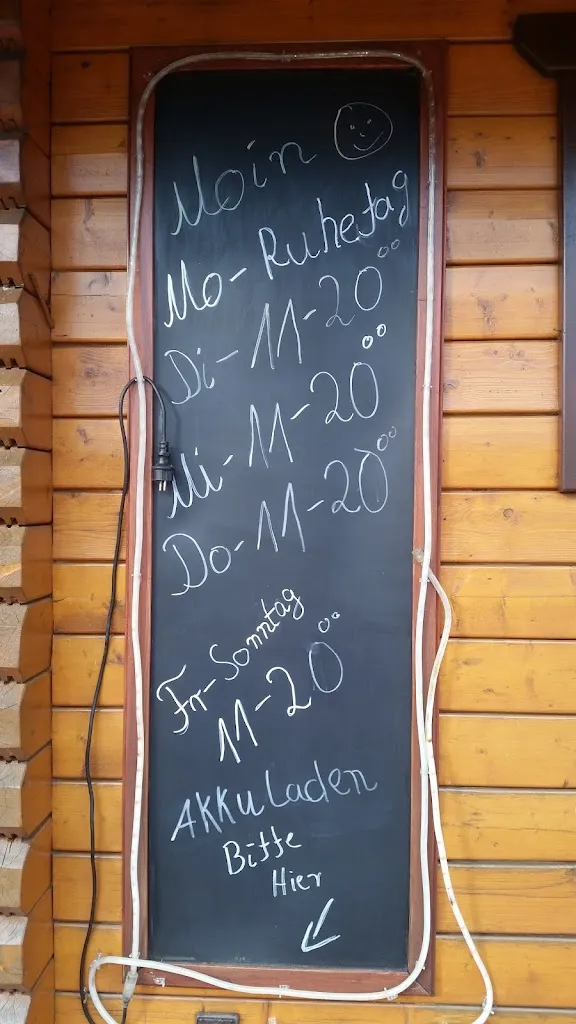 Moin
Mo - Ruhetag
Di - 11 - 20⁰⁰
Mi - 11 - 20⁰⁰
Do - 11 - 20⁰⁰
Fr - Sonntag
11 - 20⁰⁰
AKKu Laden
Bitte
Hier